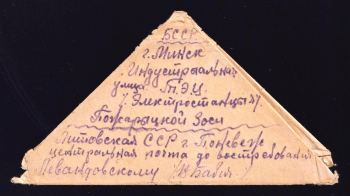 БССР
г. Минск
Индустрыальная
улица Т.Э.Ц.
Электростанцыя
Пожарыцкой Зоси
Литовская ССР г. Поневеж
центральная почта до востребования
Левандовскому